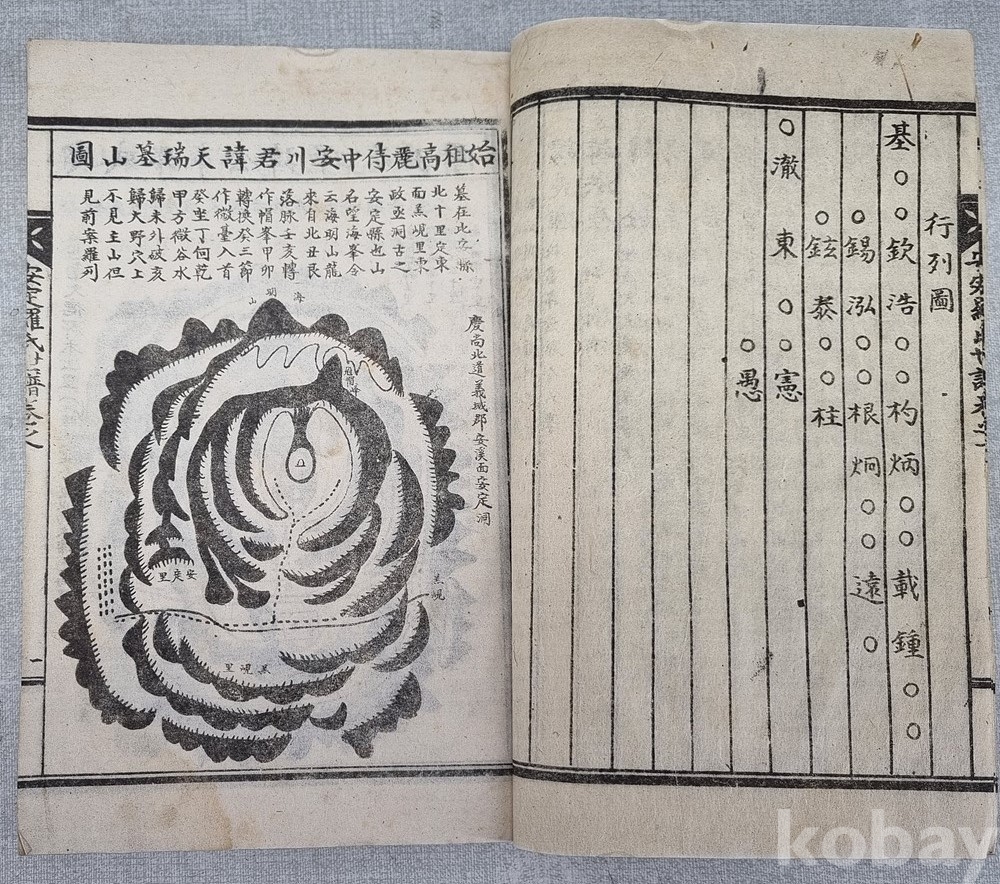 行列圖
基○○欽浩○○杓炳○○載鍾○○
○錫泓○○根炯○○遠○
○鉉泰○○柱
○澈東○○憲
○愚
始祖高麗侍中安川君諱天瑞墓山圖
墓在此之縣
北十里定東
面羔峴里東
政丞洞古之
安定縣也山
名望海峯念
云海明山龍
來自北丑艮
落脉壬亥轉
作帽峯甲卯
轉換癸三節
作微臺入首
癸坐丁向乾
甲方嶽谷水
歸未外破亥
歸大野穴上
不見主山但
見前案羅列
海明山
慶尚北道義城郡安溪面安定洞
安定里
羔峴
羔峴里
安定羅氏世譜卷之
一
kobay